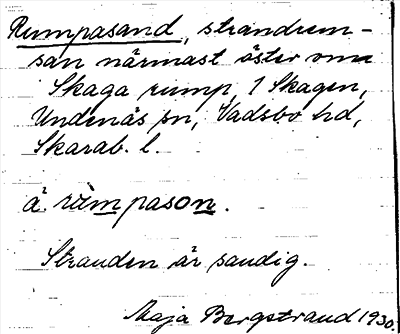 Rumpasand, strandrem-
san närmast öster om
Skaga rump, 1 Skagen,
Undenäs sn, Vadsbo hd,
Skarab. l.
å rùmpason.
Stranden är sandig.
Maja Bergstrand 1930.